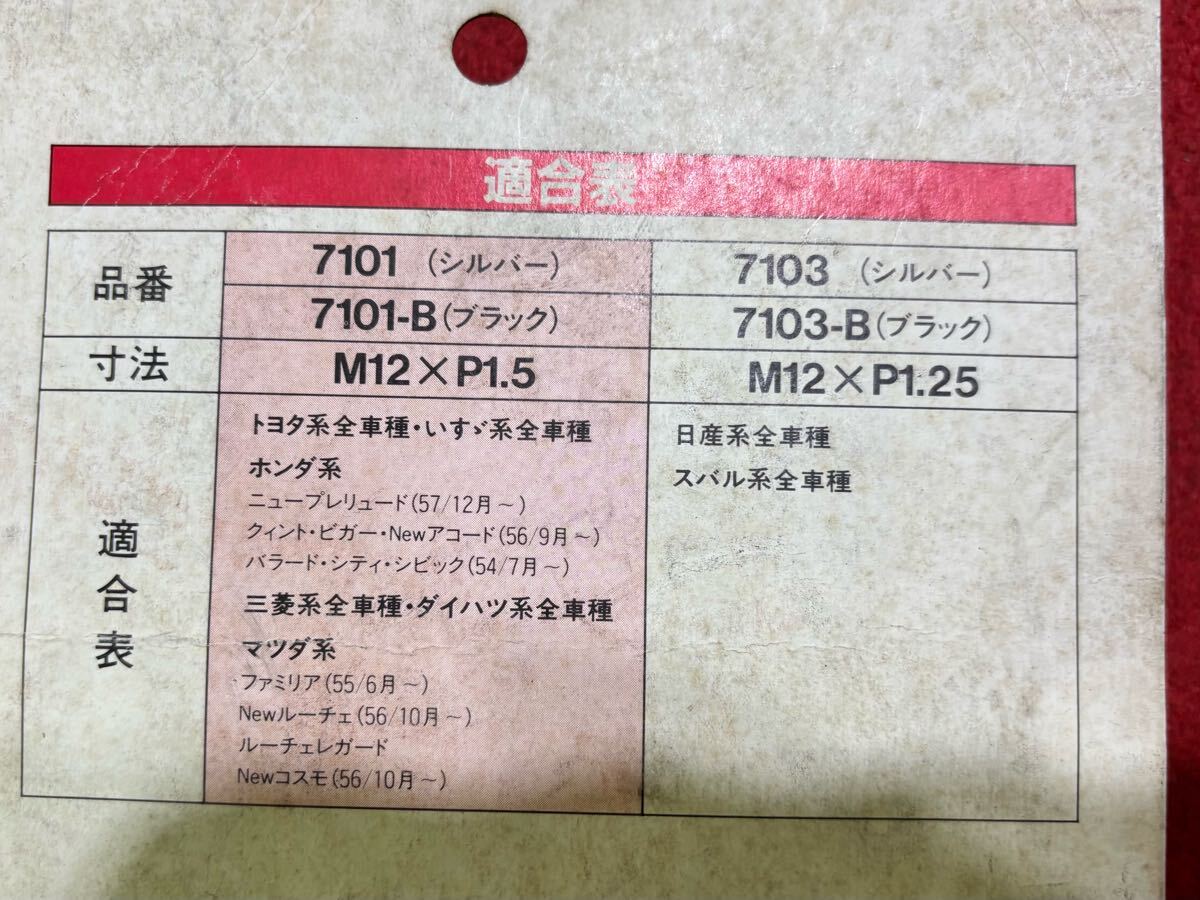 適合表
品番
7101 (シルバー)
7103 (シルバー)
7101-B(ブラック)
7103-B(ブラック)
寸法
M12×P1.5
M12×P1.25
適合表
トヨタ系全車種・いすゞ系全車種
ホンダ系
ニュープレリュード(57/12月~)
クィント・ビガー・Newアコード(56/9月~)
バラード・シティ・シビック(54/7月~)
三菱系全車種・ダイハツ系全車種
マツダ系
ファミリア(55/6月~)
Newルーチェ(56/10月~)
ルーチェレガード
Newコスモ(56/10月~)
日産系全車種
スバル系全車種